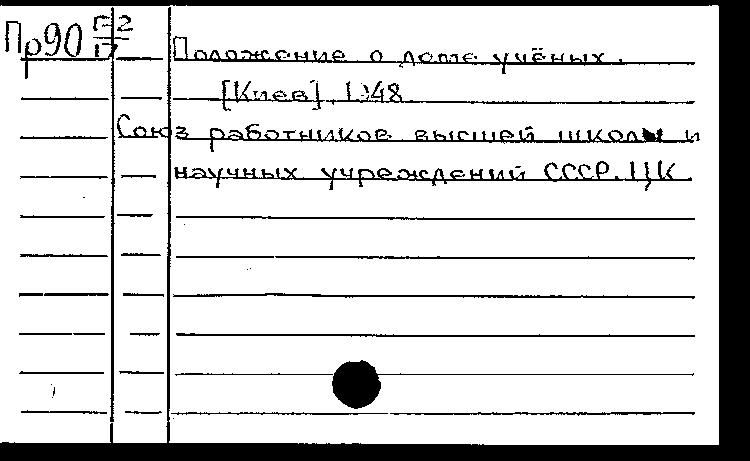 Пр90 Г-2/П Положение о доме учёных.
[Киев], 1948.
Союз работников высшей школы и
научных учреждений СССР. ЦК.